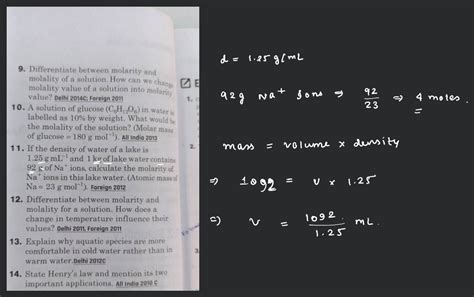 9. Differentiate between molarity and
molality of a solution. How can we change
molality value of a solution into molarity
value? Delhi 2014C; Foreign 2011
10. A solution of glucose (C₆H₁₂O₆) in water is
labelled as 10% by weight. What would be
the molality of the solution? (Molar mass
of glucose = 180 g mol⁻¹). All India 2013
11. If the density of water of a lake is
1.25 g mL⁻¹ and 1 kg of lake water contains
92 g of Na⁺ ions, calculate the molarity of
Na⁺ ions in this lake water. (Atomic mass of
Na = 23 g mol⁻¹). Foreign 2012
12. Differentiate between molarity and
molality for a solution. How does a
change in temperature influence their
values? Delhi 2011, Foreign 2011
13. Explain why aquatic species are more
comfortable in cold water rather than in
warm water. Delhi 2012C
14. State Henry's law and mention its two
important applications. All India 2010 C
E
1.
d = 1.25 g/mL
92g Na⁺ Ions ⇒ 92/23 ⇒ 4 moles.
mass = volume × density
⇒ 1092 = v × 1.25
⇒ v = 1092/1.25 mL.